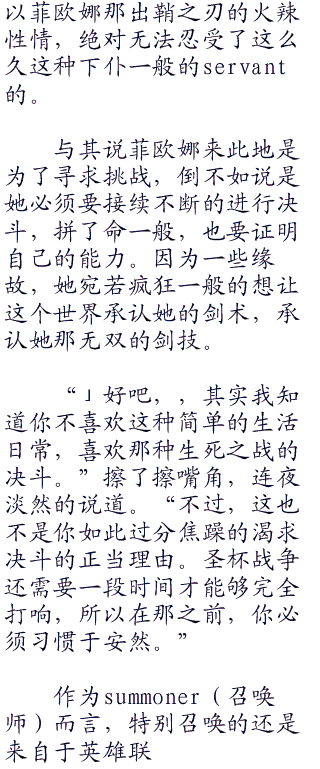 以菲欧娜那出鞘之刃的火辣
性情，绝对无法忍受了这么
久这种下仆一般的servant
的。
与其说菲欧娜来此地是
为了寻求挑战，倒不如说是
她必须要接续不断的进行决
斗，拼了命一般，也要证明
自己的能力。因为一些缘
故，她宛若疯狂一般的想让
这个世界承认她的剑术，承
认她那无双的剑技。
“」好吧，，其实我知
道你不喜欢这种简单的生活
日常，喜欢那种生死之战的
决斗。”擦了擦嘴角，连夜
淡然的说道。“不过，这也
不是你如此过分焦躁的渴求
决斗的正当理由。圣杯战争
还需要一段时间才能够完全
打响，所以在那之前，你必
须习惯于安然。”
作为summoner（召唤
师）而言，特别召唤的还是
来自于英雄联